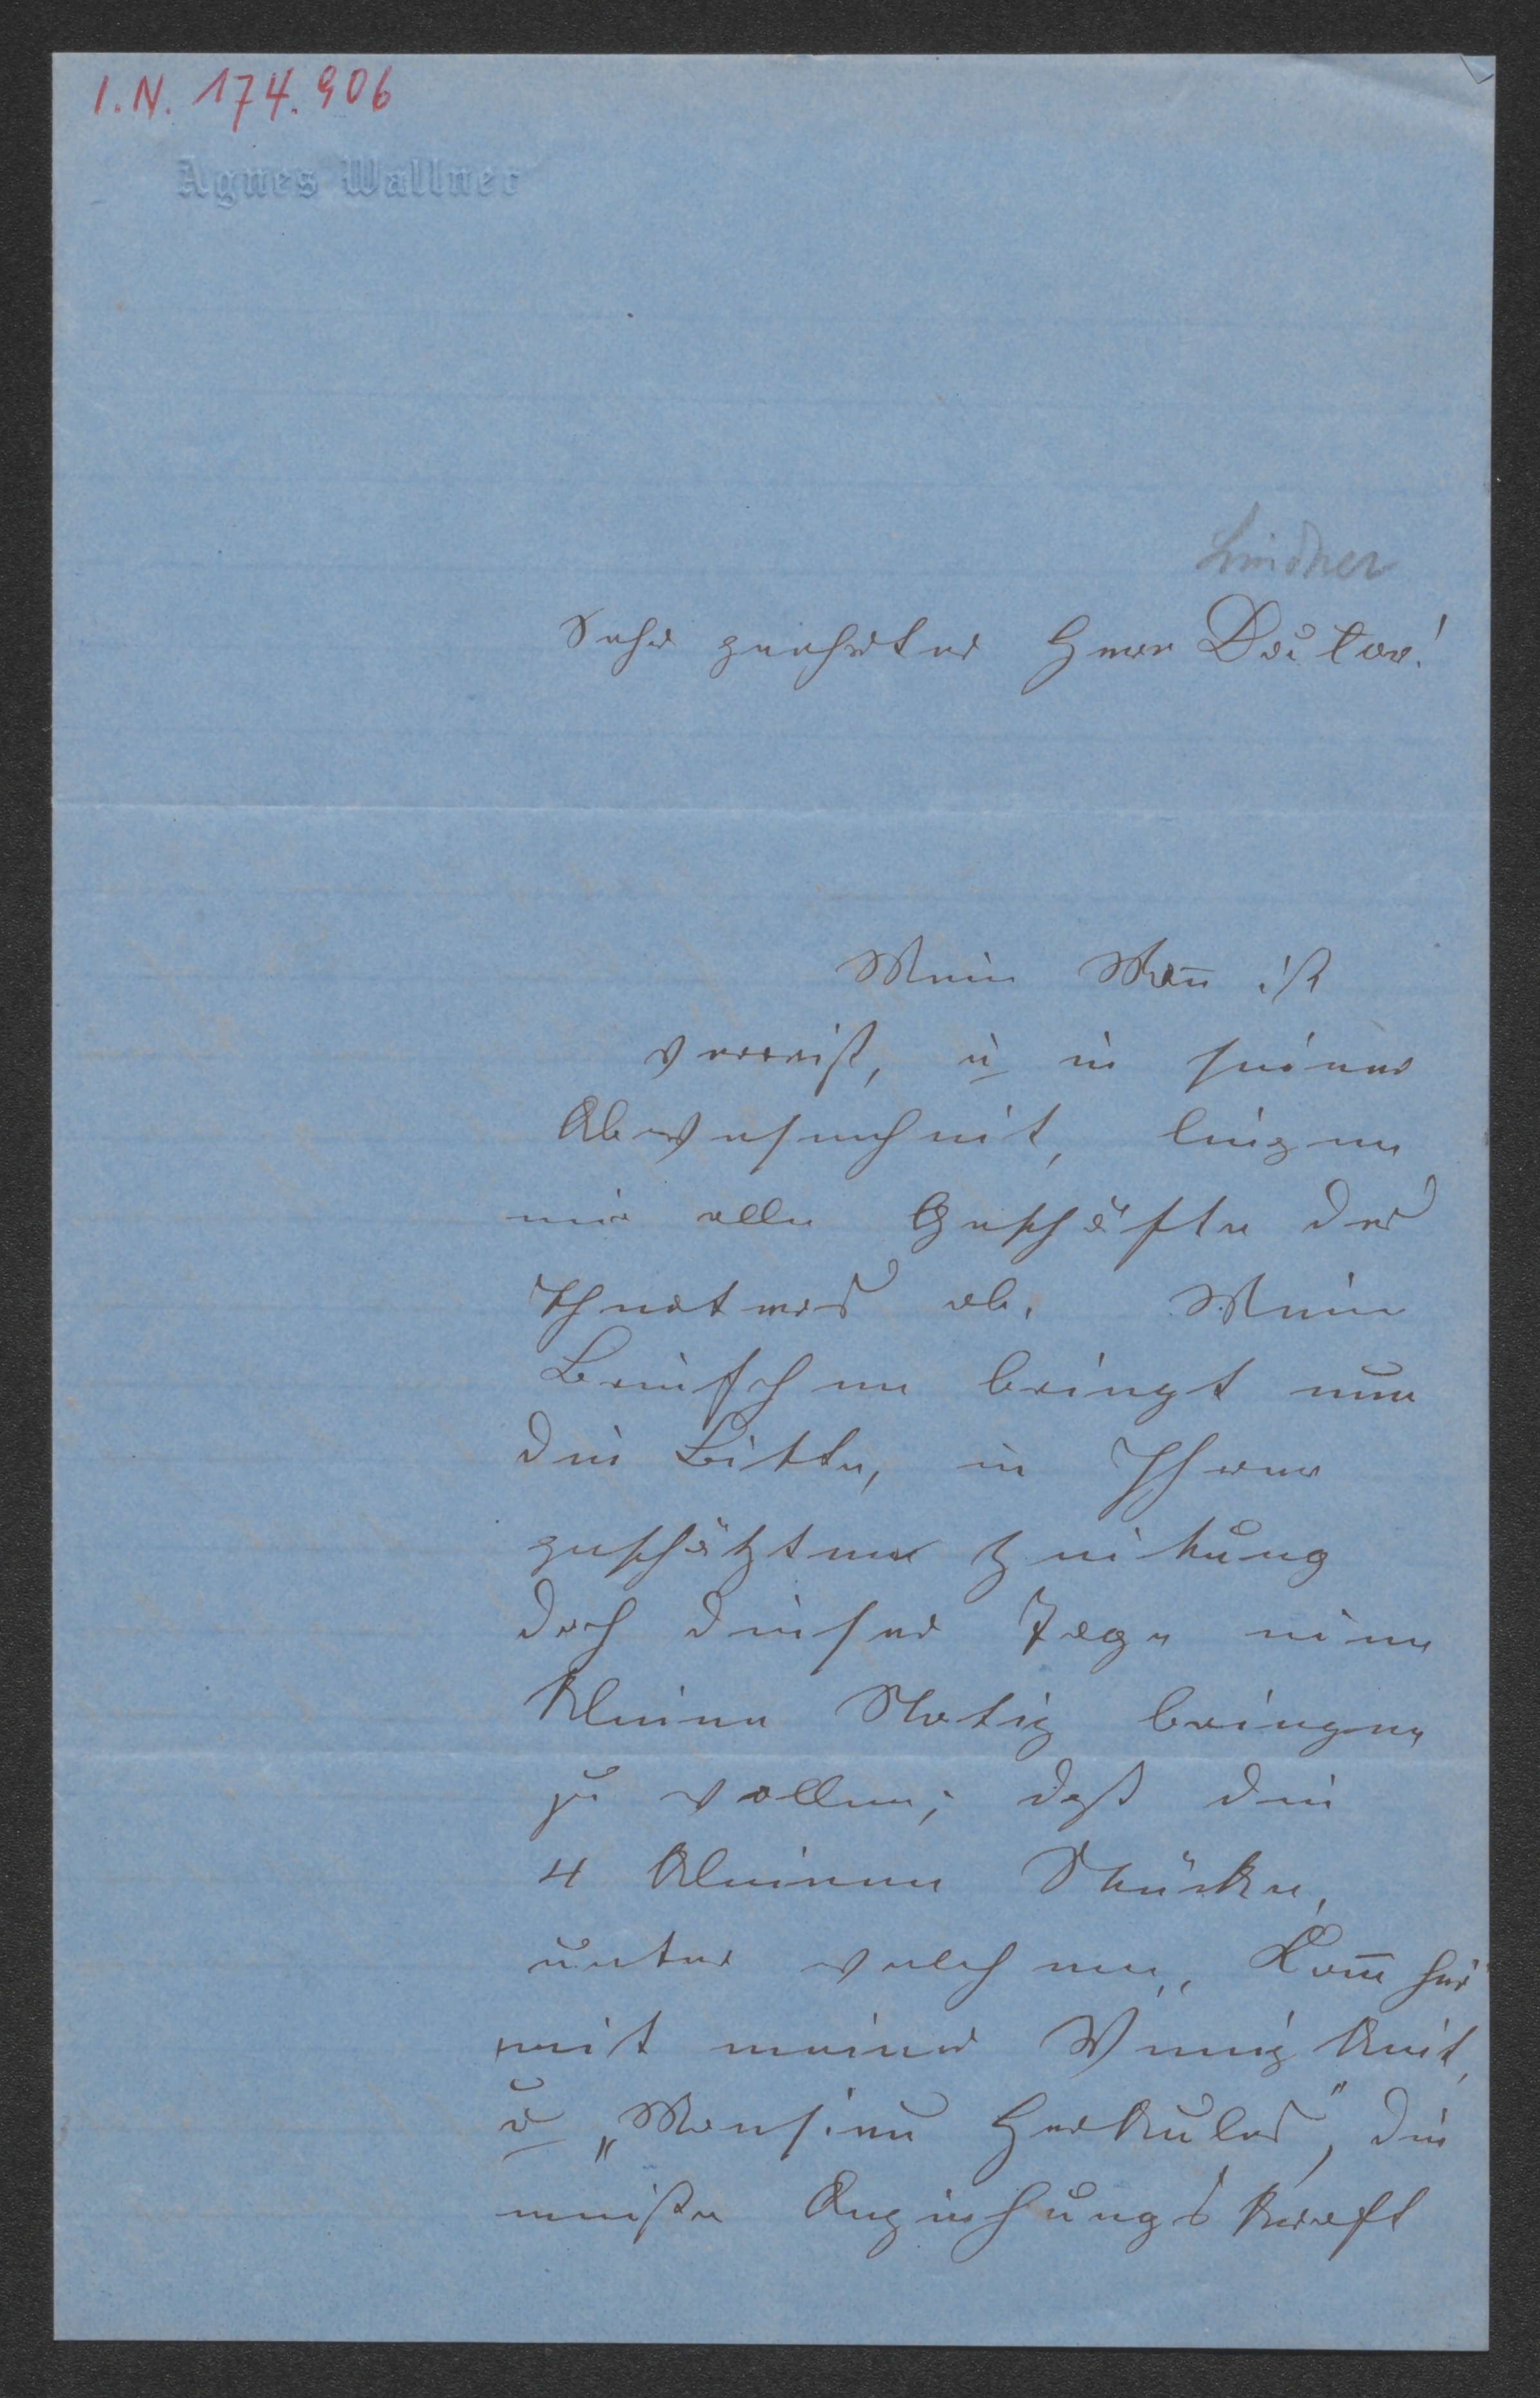 I.N. 174.906
Agnes Wallner
Lindner
Sehr geehrter Herr Doctor!
Mein Mañ ist
verreist, u in seiner
Abwesenheit, liegen
mir alle Geschäfte des
Theaters ob. Mein
Briefchen bringt nun
die Bitte, in Ihrer
geschätzten Zeitung
doch dieser Tage eine
kleine Notiz bringen
zu wollen; daß die
4 kleinen Stücke,
unter welchen „Kom̄ her"
mit meiner Wenigkeit,
u „Monsieu Herkules", die
meiste Anziehungskraft